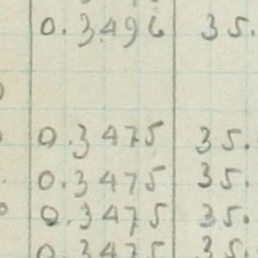 0.3496 35.
0.3475 35.
0.3475 35.
0.3475 35.
0.3475 35.